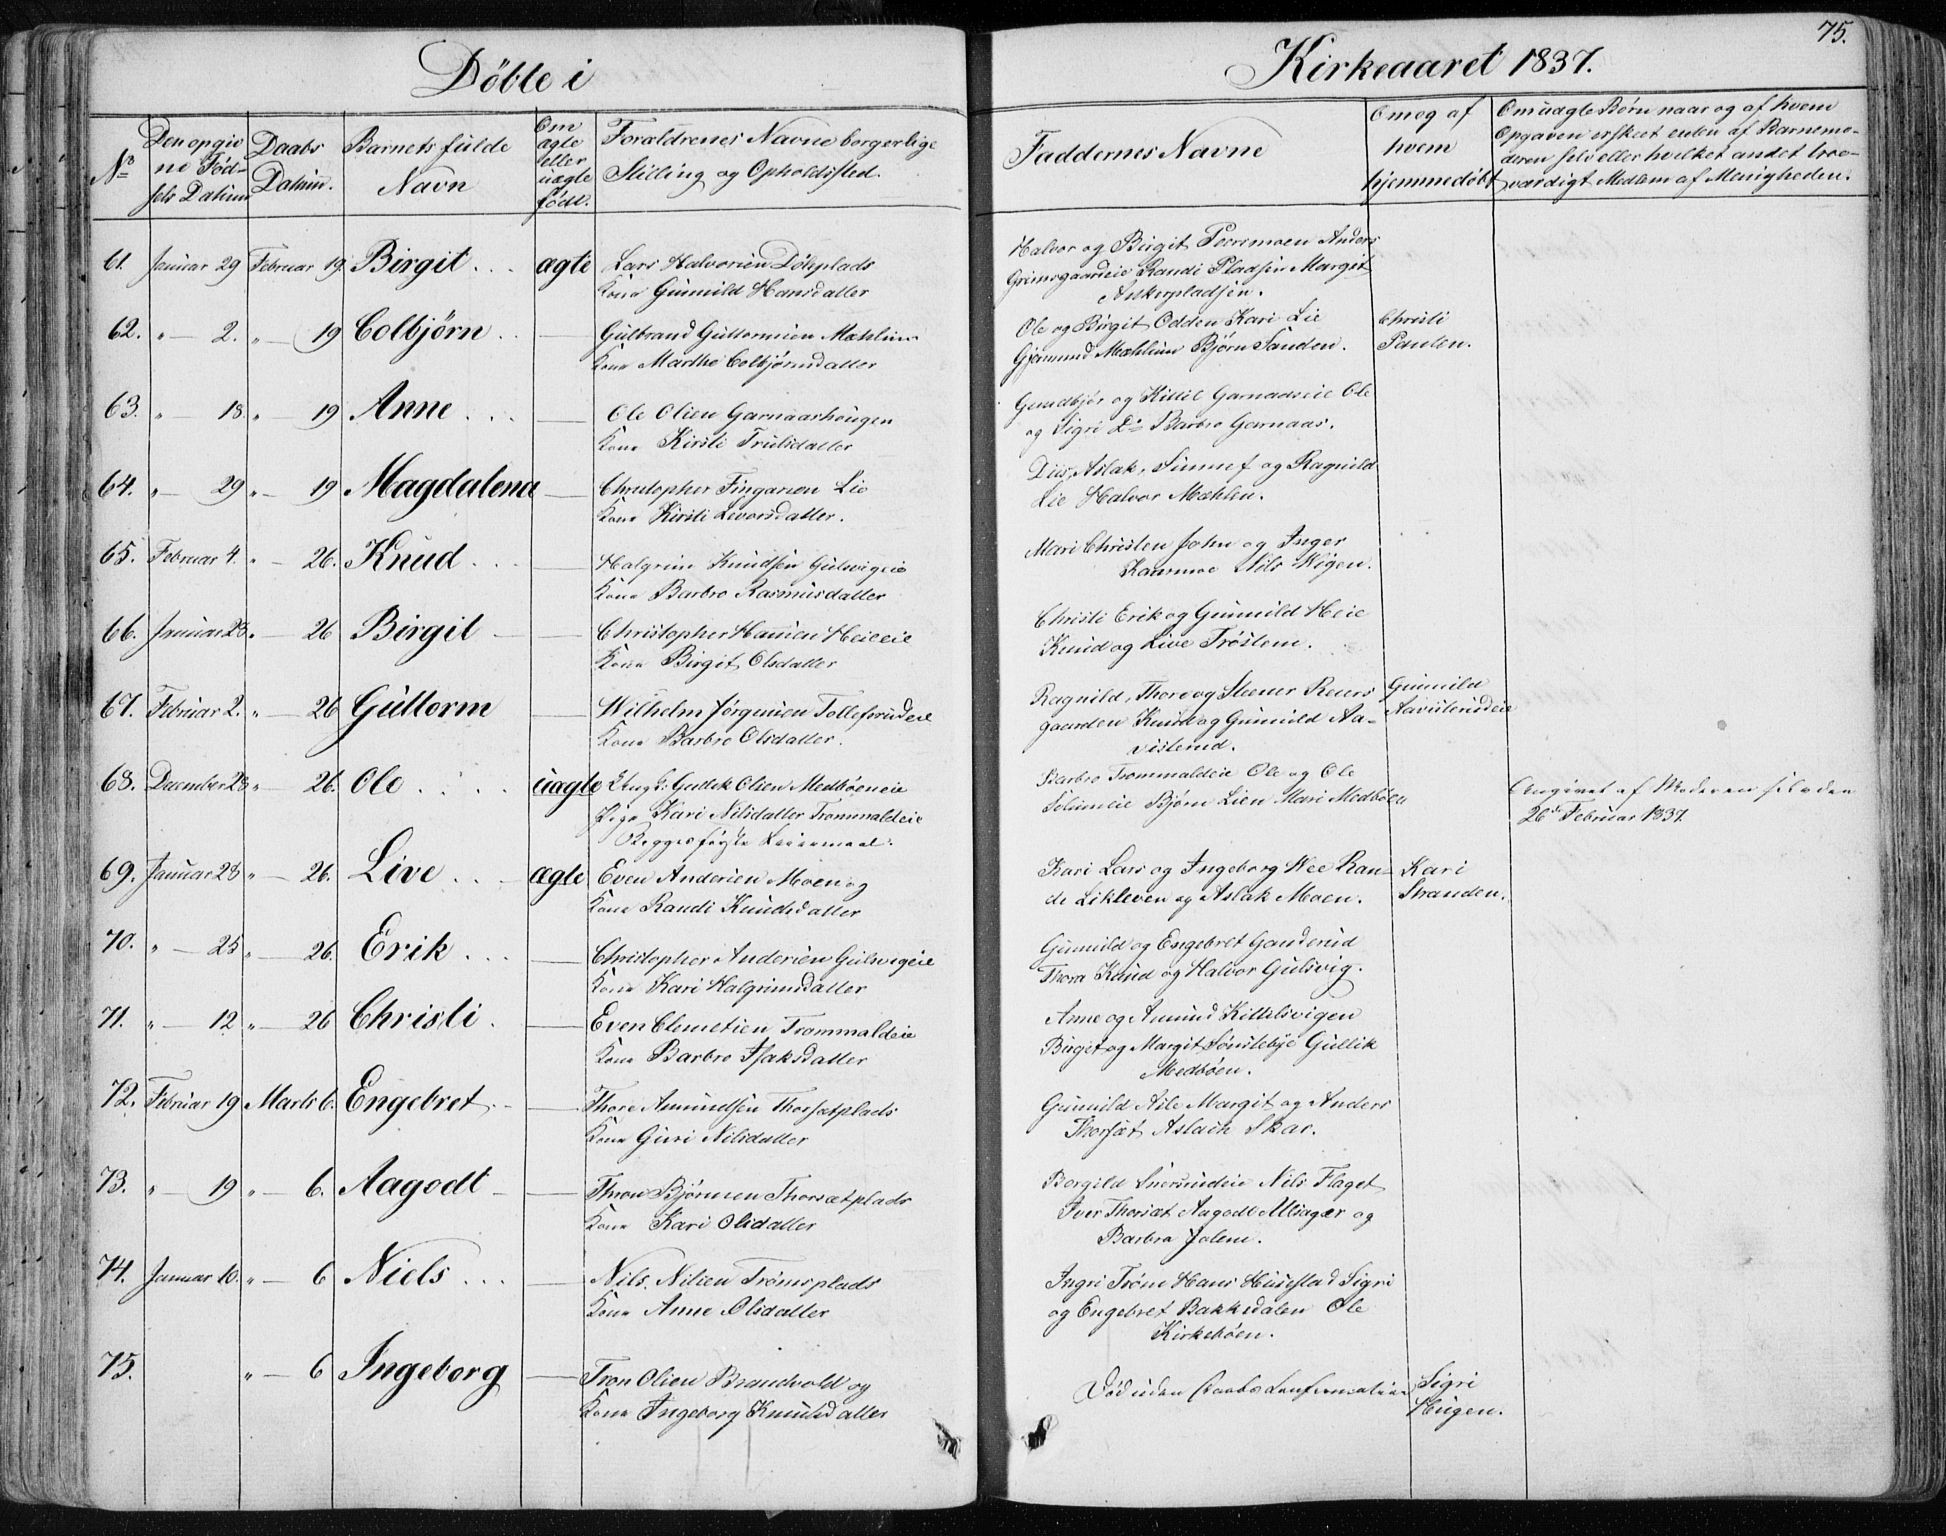 Døbte i
Kirkeaaret 1837.
75.
No
Den opgivne Fødsels Datum
Daabs Datum.
Barnets fulde Navn
Om ægte eller uægte født.
Forældrenes Navne borgerlige Stilling og Opholdssted.
Faddernes Navne
Om og af hvem hjemmedøbt
Om uægte Børn naar og af hvem Opgaven er skeet enten af Barnemoderen selv eller hvilket andet troeværdigt Medlem af Menigheden.
61. Januar 29 Februar 19. Birgit ægte Lars Halvorsen Dökplads
Kone Gunnild Hansdatter
Halvor og Birgit Peersmoen Anders
Grimsgaardeie Randi Pladsen Margit
Askerpladsen.
62. " 2. " 19 Colbjørn Gulbrand Guttormsen Mæhlum
Kone Marthe Colbjørnsdatter
Ole og Birgit Odden Kari Lie
Gjermund Mæhlum Bjørn Sanden.
Christi
Paulen.
63. " 18. " 19 Anne Ole Olsen Garnaashougen
Kone Kirsti Trulsdatter
Gundbjør og Kittil Garnaaseie Ole
og Sigri Do Barbro Garnaas.
64. " 29 " 19 Magdalena Christopher Fingarsen Lie
Kone Kirsti Levorsdatter.
Aslak, Sunnef og Ragnild
Lie Halvor Mæhlen.
65. Februar 4. " 26. Knud Halgrim Knudsen Gulsvigeie
Kone Barbro Rasmusdatter
Mari Christen John og Inger
Kaarmoe Nils Wigen.
66. Januar 28. " 26 Birgit Christopher Hansen Heieeie
Kone Birgit Olsdatter
Christi Erik og Gunnild Heie
Knud og Live Trøstem.
67. Februar 2. " 26 Guttorm Wilhelm Jørgensen Tollefsrudeie
Kone Barbro Olsdatter.
Ragnild, Thore og Steener Reiers
gaarden Knud og Gunnild Aa-
visterud.
Gunnild
Aavisterudeie
68. December 28 " 26. Ole uægte Ung K: Gullik Olsen Medbøeneie
Pige Kari Nilsdatter Trommaldeie
Begges første Leiermaal.
Barbro Trommaldeie Ole og Ole
Solumeie Bjørn Lien Mari Medbøen
Angivet af Moderen selv den
26de Februar 1837.
69. Januar 28 " 26. Live ægte Even Andersen Moen og
Kone Randi Knudsdatter
Kari Lars og Ingeborg Wee Ran-
de Likleven og Aslak Moen.
Kari
Stranden.
70. " 25 " 26. Erik Christopher Andersen Gulsvigeie
Kone Kari Halgrimsdatter
Gunnild og Engebret Ganderud
Thora Knud og Halvor Gulsvig.
71. " 12 " 26 Christi Even Clemetsen Trommaldeie
Kone Barbro Isaksdatter
Anne og Amund Kittilsvigen
Birget og Margit Sønstebye Gullik
Medbøen.
72. Februar 19 Marts 6. Engebret Thore Amundsen Thorsætplads
Kone Guri Nilsdatter
Gunnild Asle Margit og Anders
Thorsæt Aslach Skar.
73. " 19 " 6. Aagodt Thron Bjørnsen Thorsætplads
Kone Kari Olsdatter
Borgild Snersrudeie Nils Flaget
Iver Thorsæt Aagodt Alsager og
Barbra Jolem.
74. Januar 10. " 6 Niels Nils Nilsen Trømsplads
Kone Anne Olsdatter
Ingri Trøm Hans Husestad Sigri
og Engebret Bakkedalen Ole
Kirkebøen.
75. " 6 Ingeborg Tron Olsen Brandvold og
Kone Ingeborg Knudsdatter
Død uden Daabs Confirmation
Sigri
Hugen.